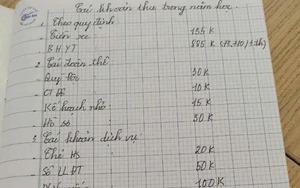 Các khoản thu trong năm học
1. Theo quy định
Tiền xe 135 K
BHYT 885 K
2. Các đoàn thể
Quỹ lớp 50K
CT Đội 10K
Kế hoạch nhỏ 15 K
Hồ sơ 30 K
3. Các khoản dịch vụ:
Thẻ HS 20K
Sổ LLĐT 50K
100K